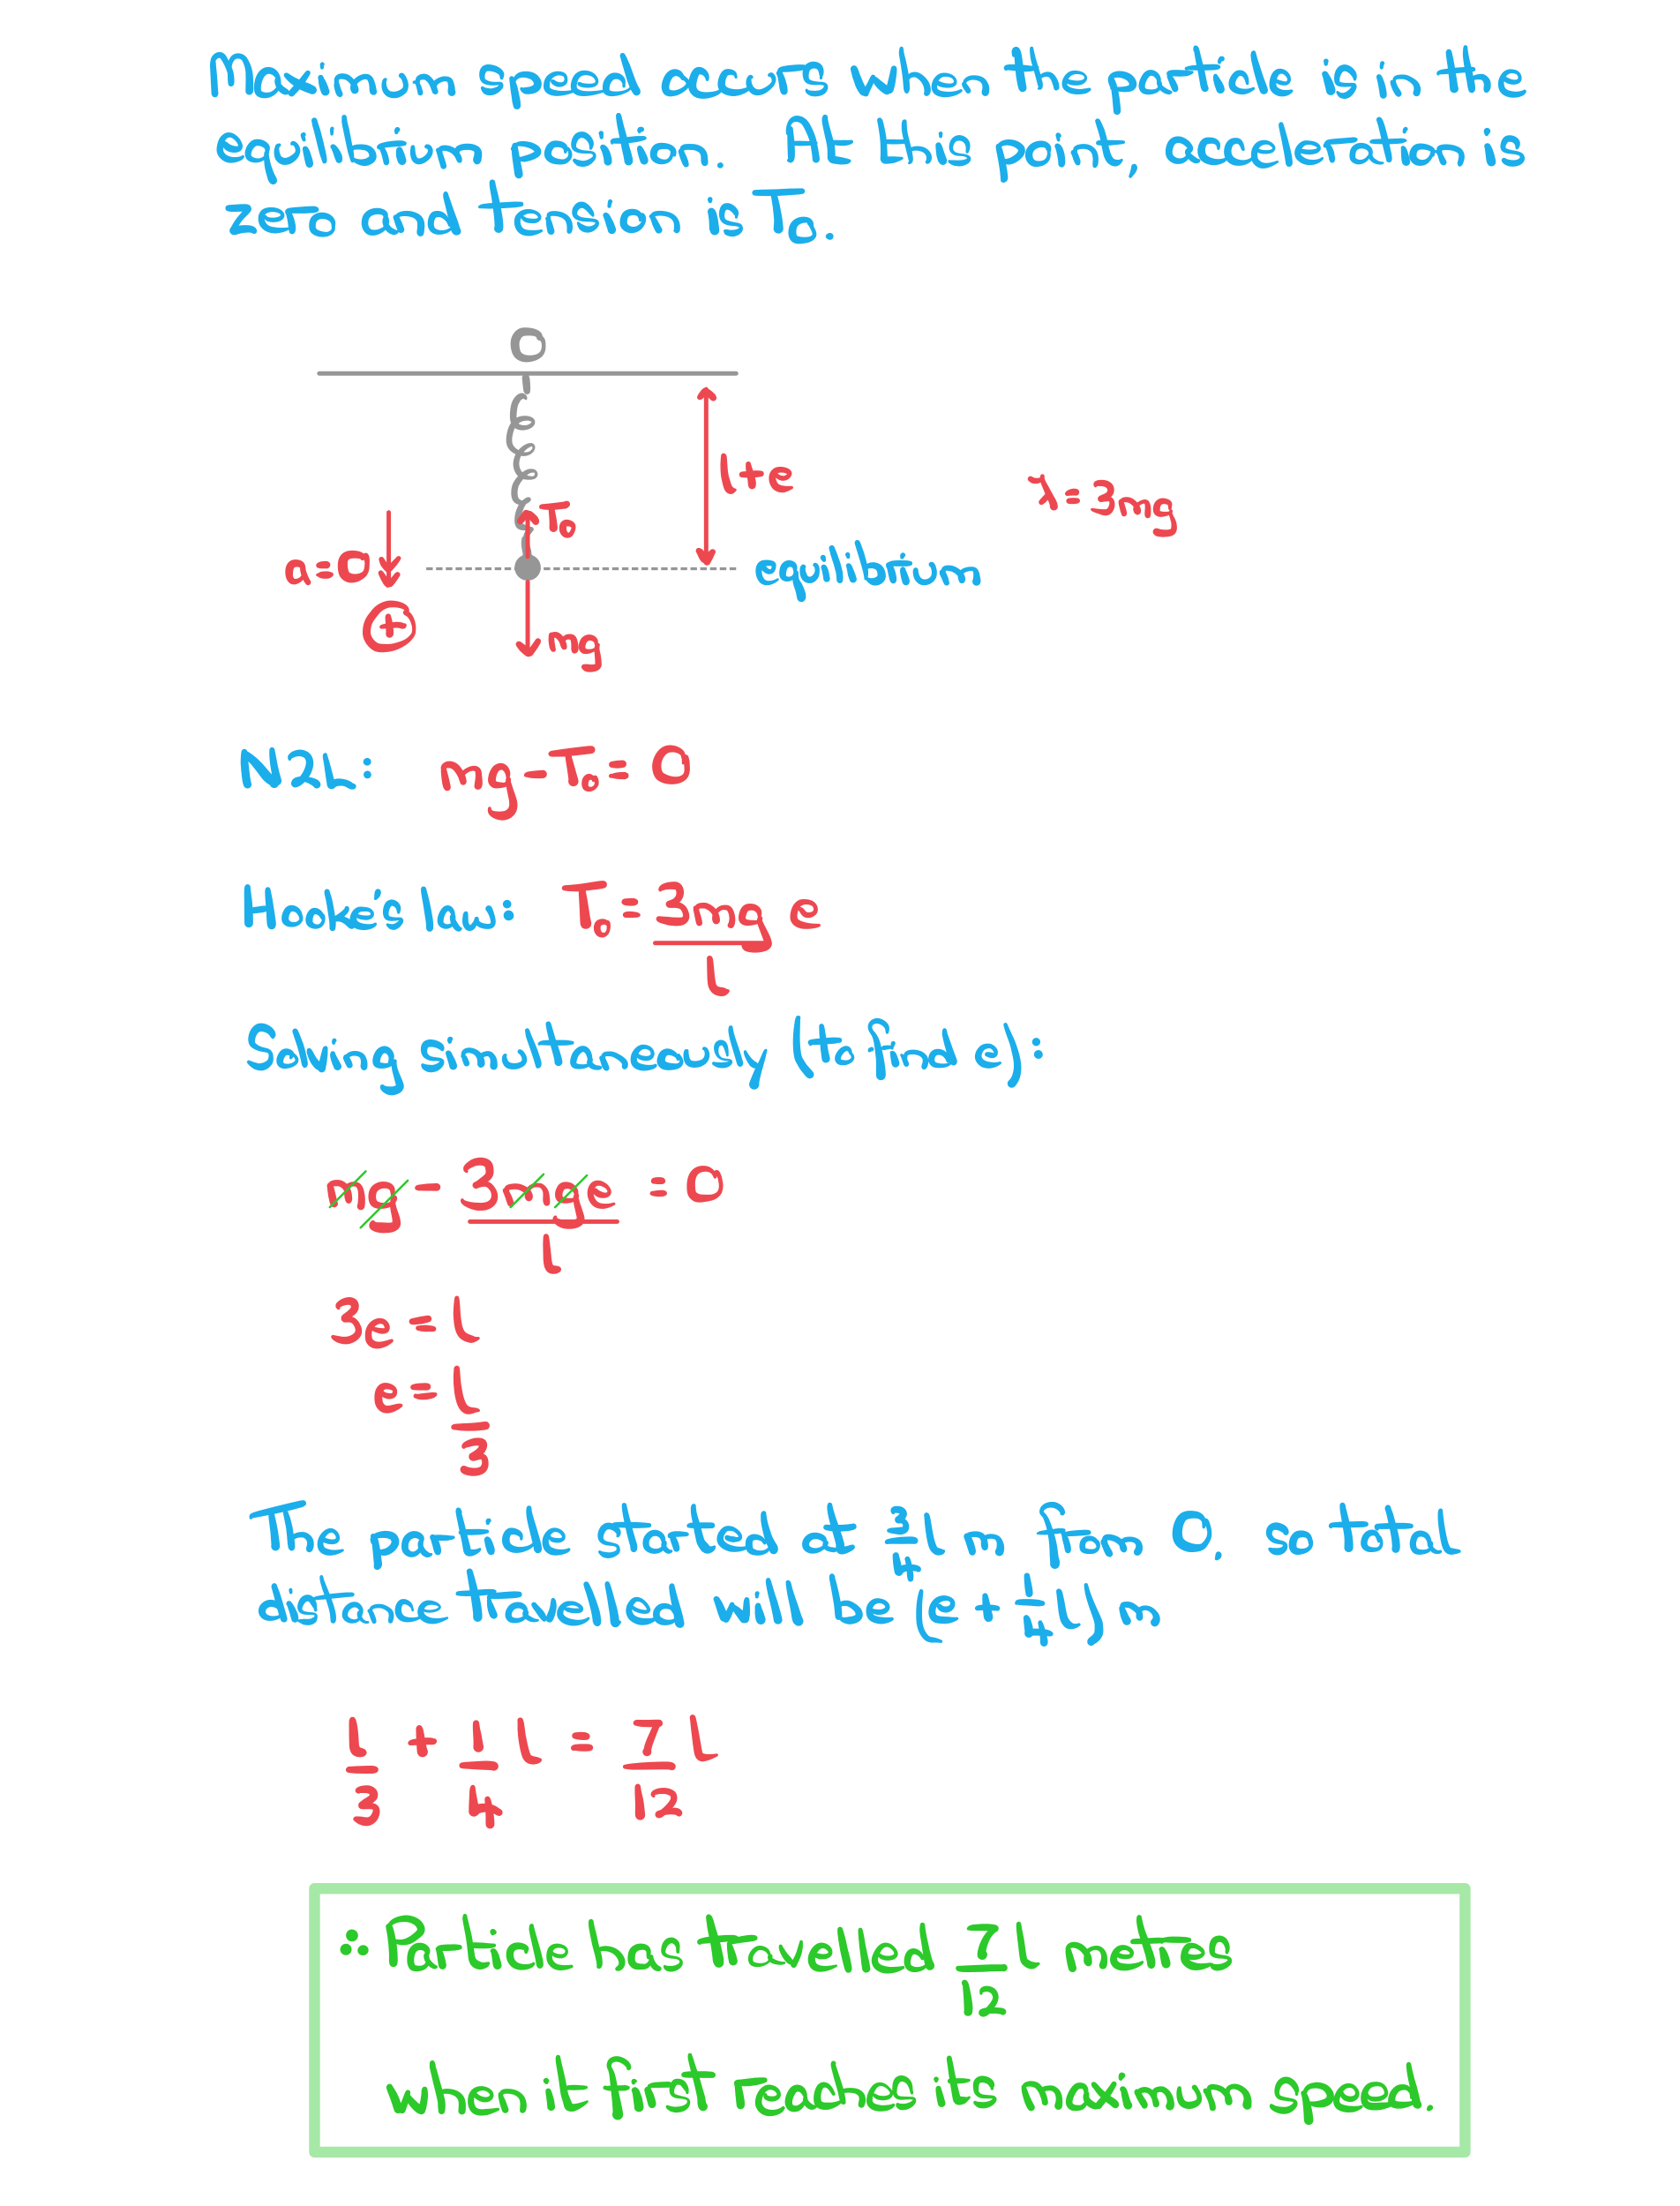 Maximum speed occurs when the particle is in the
equilibrium position. At this point, acceleration is
zero and tension is T₀.
O
l+e
λ=3mg
T₀
a=0
equilibrium
+
mg
N2L: mg-T₀=0
Hooke's law: T₀=3mg/l e
Solving simultaneously (to find e):
mg - 3mge/l = 0
3e = l
e = l/3
The particle started at 3/4 l m from O, so total
distance travelled will be (e + 1/4 l) m
l/3 + 1/4 l = 7/12 l
∴ Particle has travelled 7/12 l metres
when it first reaches its maximum speed.